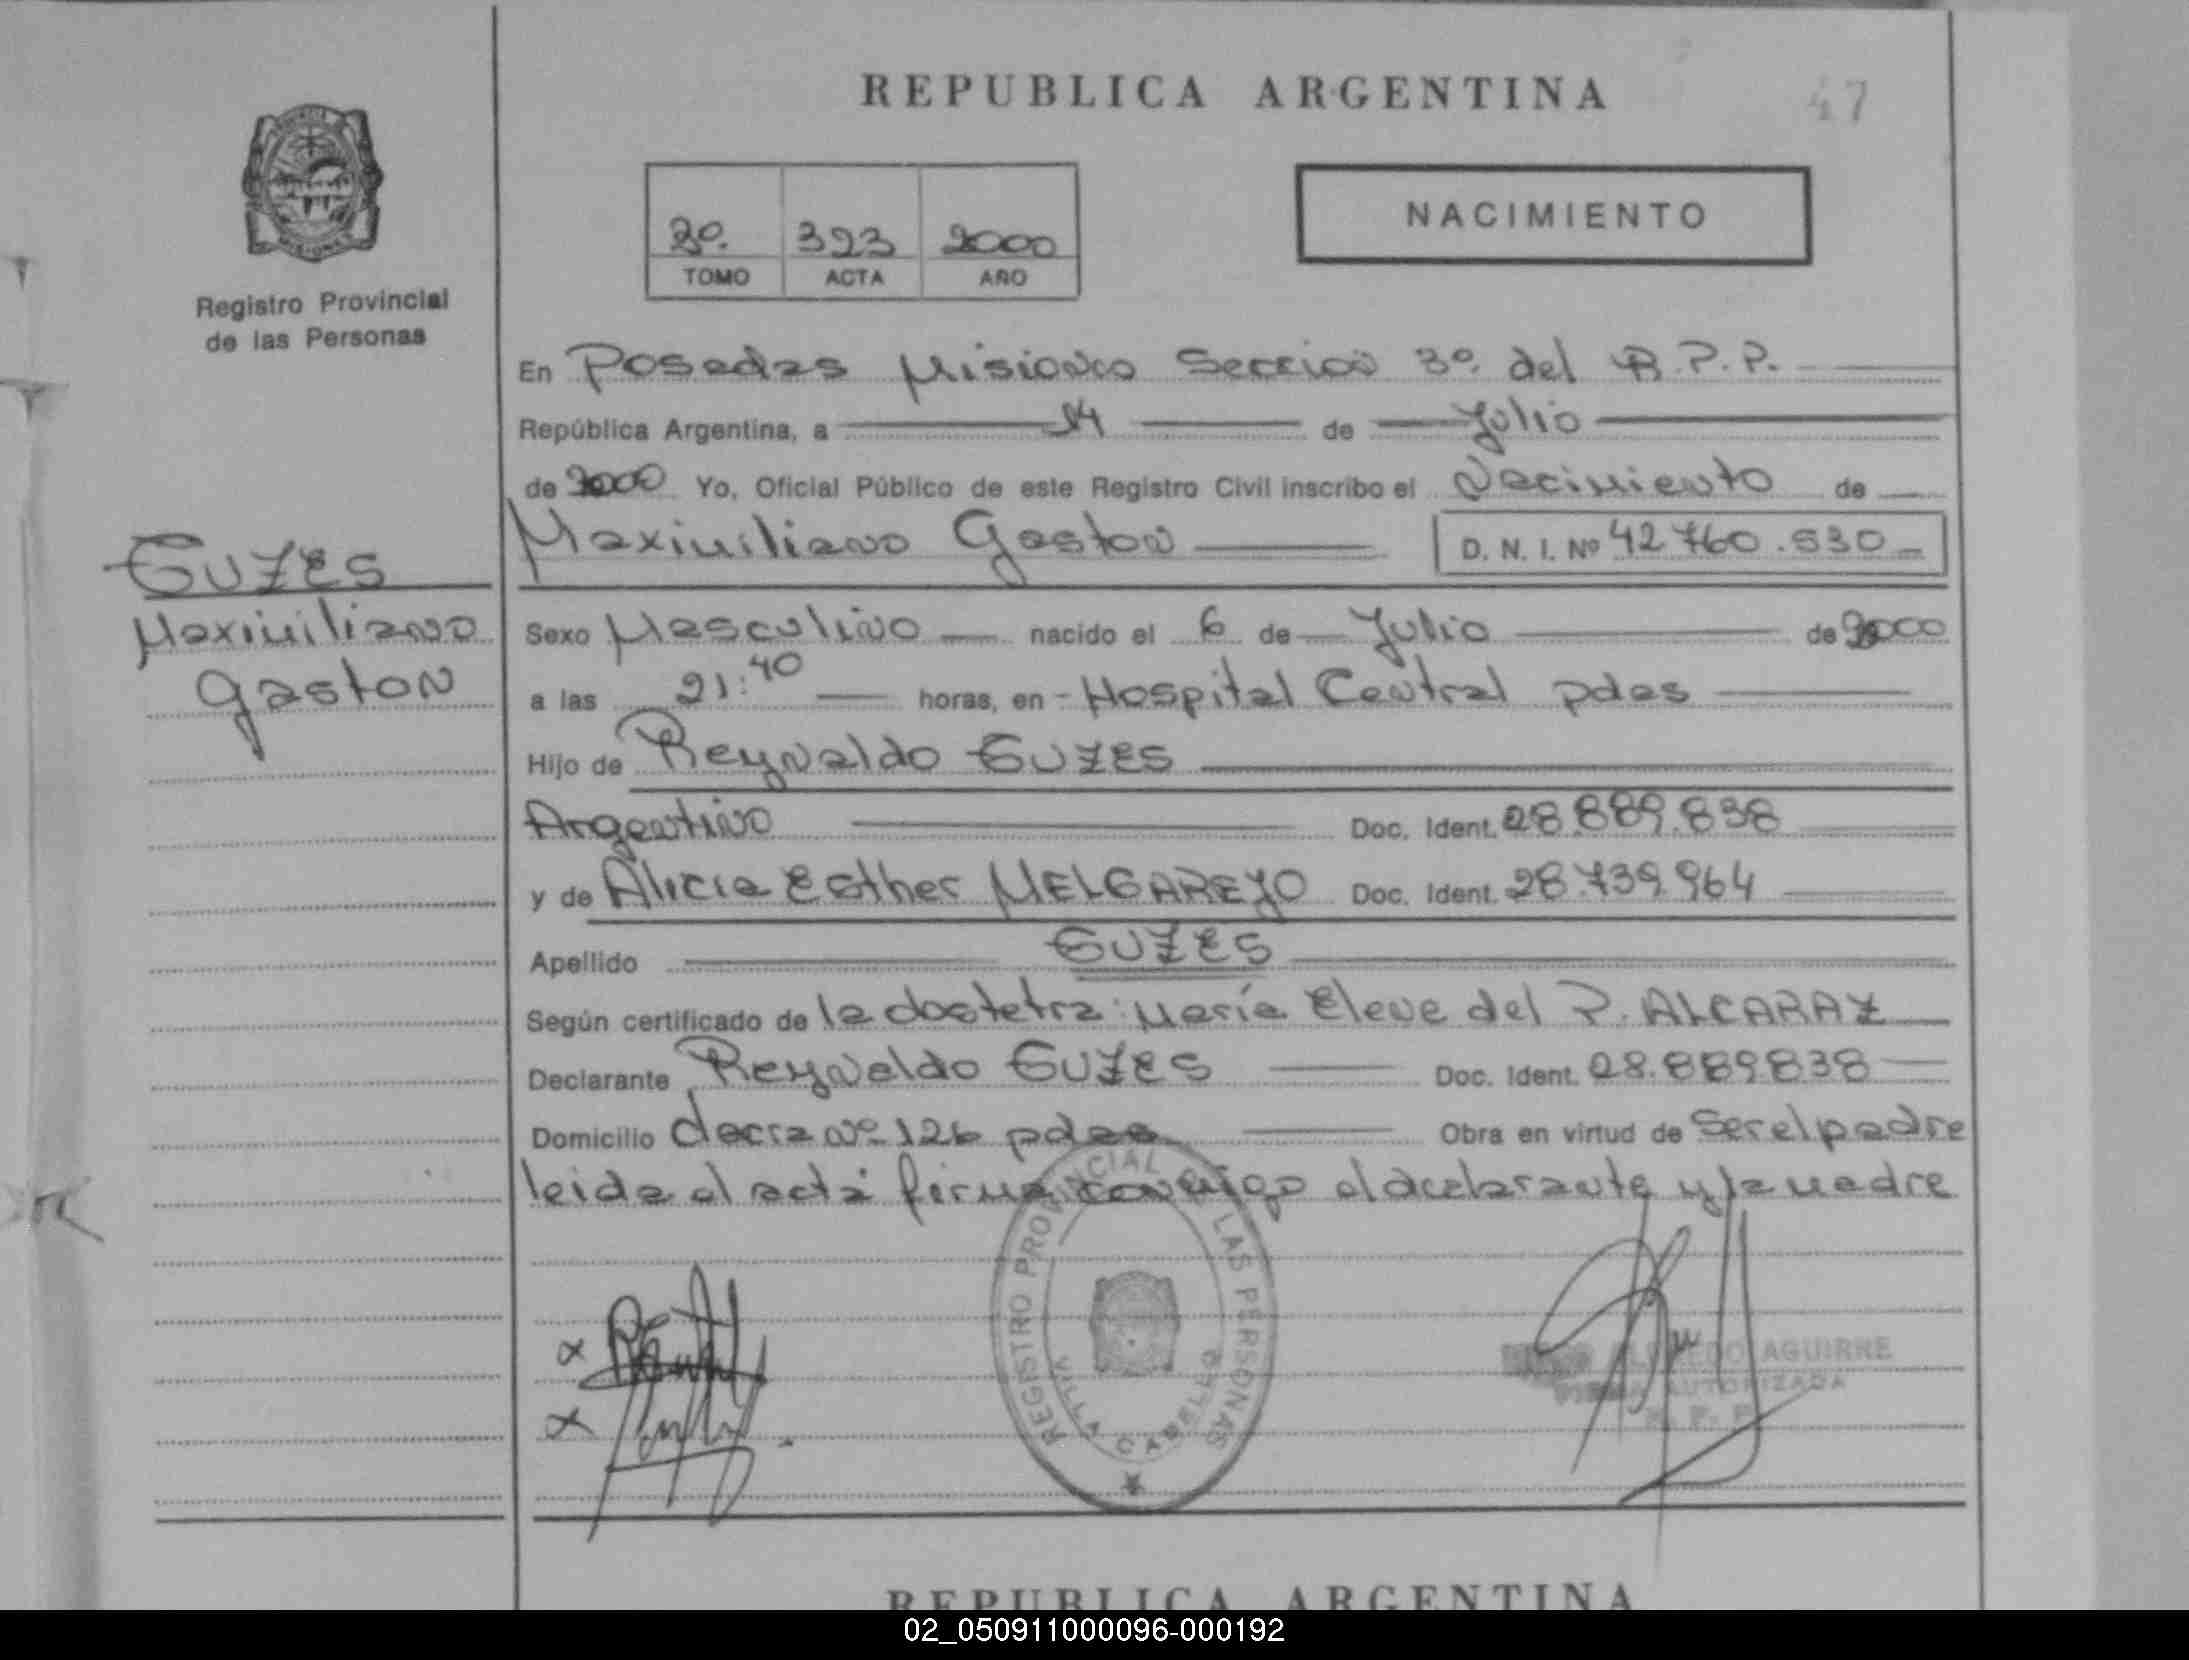 REPUBLICA ARGENTINA
47
Registro Provincial
de las Personas
2º. 323 2000
TOMO ACTA AÑO
NACIMIENTO
En Posadas Misiones Seccion 3º del R.P.P.
República Argentina, a 14 de Julio
de 2000 Yo, Oficial Público de este Registro Civil inscribo el Nacimiento de
Maximiliano Gaston D. N. I. Nº 42760.530
GUZES
Maximiliano
Gaston
Sexo Masculino nacido el 6 de Julio de 2000
a las 21:40 horas, en Hospital Central pdas
Hijo de Reynaldo GUZES
Argentino Doc. Ident. 28.889.838
y de Alicia Esther MELGAREJO Doc. Ident. 28.739.964
Apellido GUZES
Según certificado de la dostetra: María Elena del P. ALCARAZ
Declarante Reynaldo GUZES Doc. Ident. 28.889838
Domicilio Nº 126 pdas Obra en virtud de Ser el padre
leida el acta firma conmigo el declarante y la madre
REGISTRO PROVINCIAL DE LAS PERSONAS
VILLA CABELLO
ALFREDO AGUIRRE
FIRMA AUTORIZADA
R. P. P.
REPUBLICA ARGENTINA
02_050911000096-000192